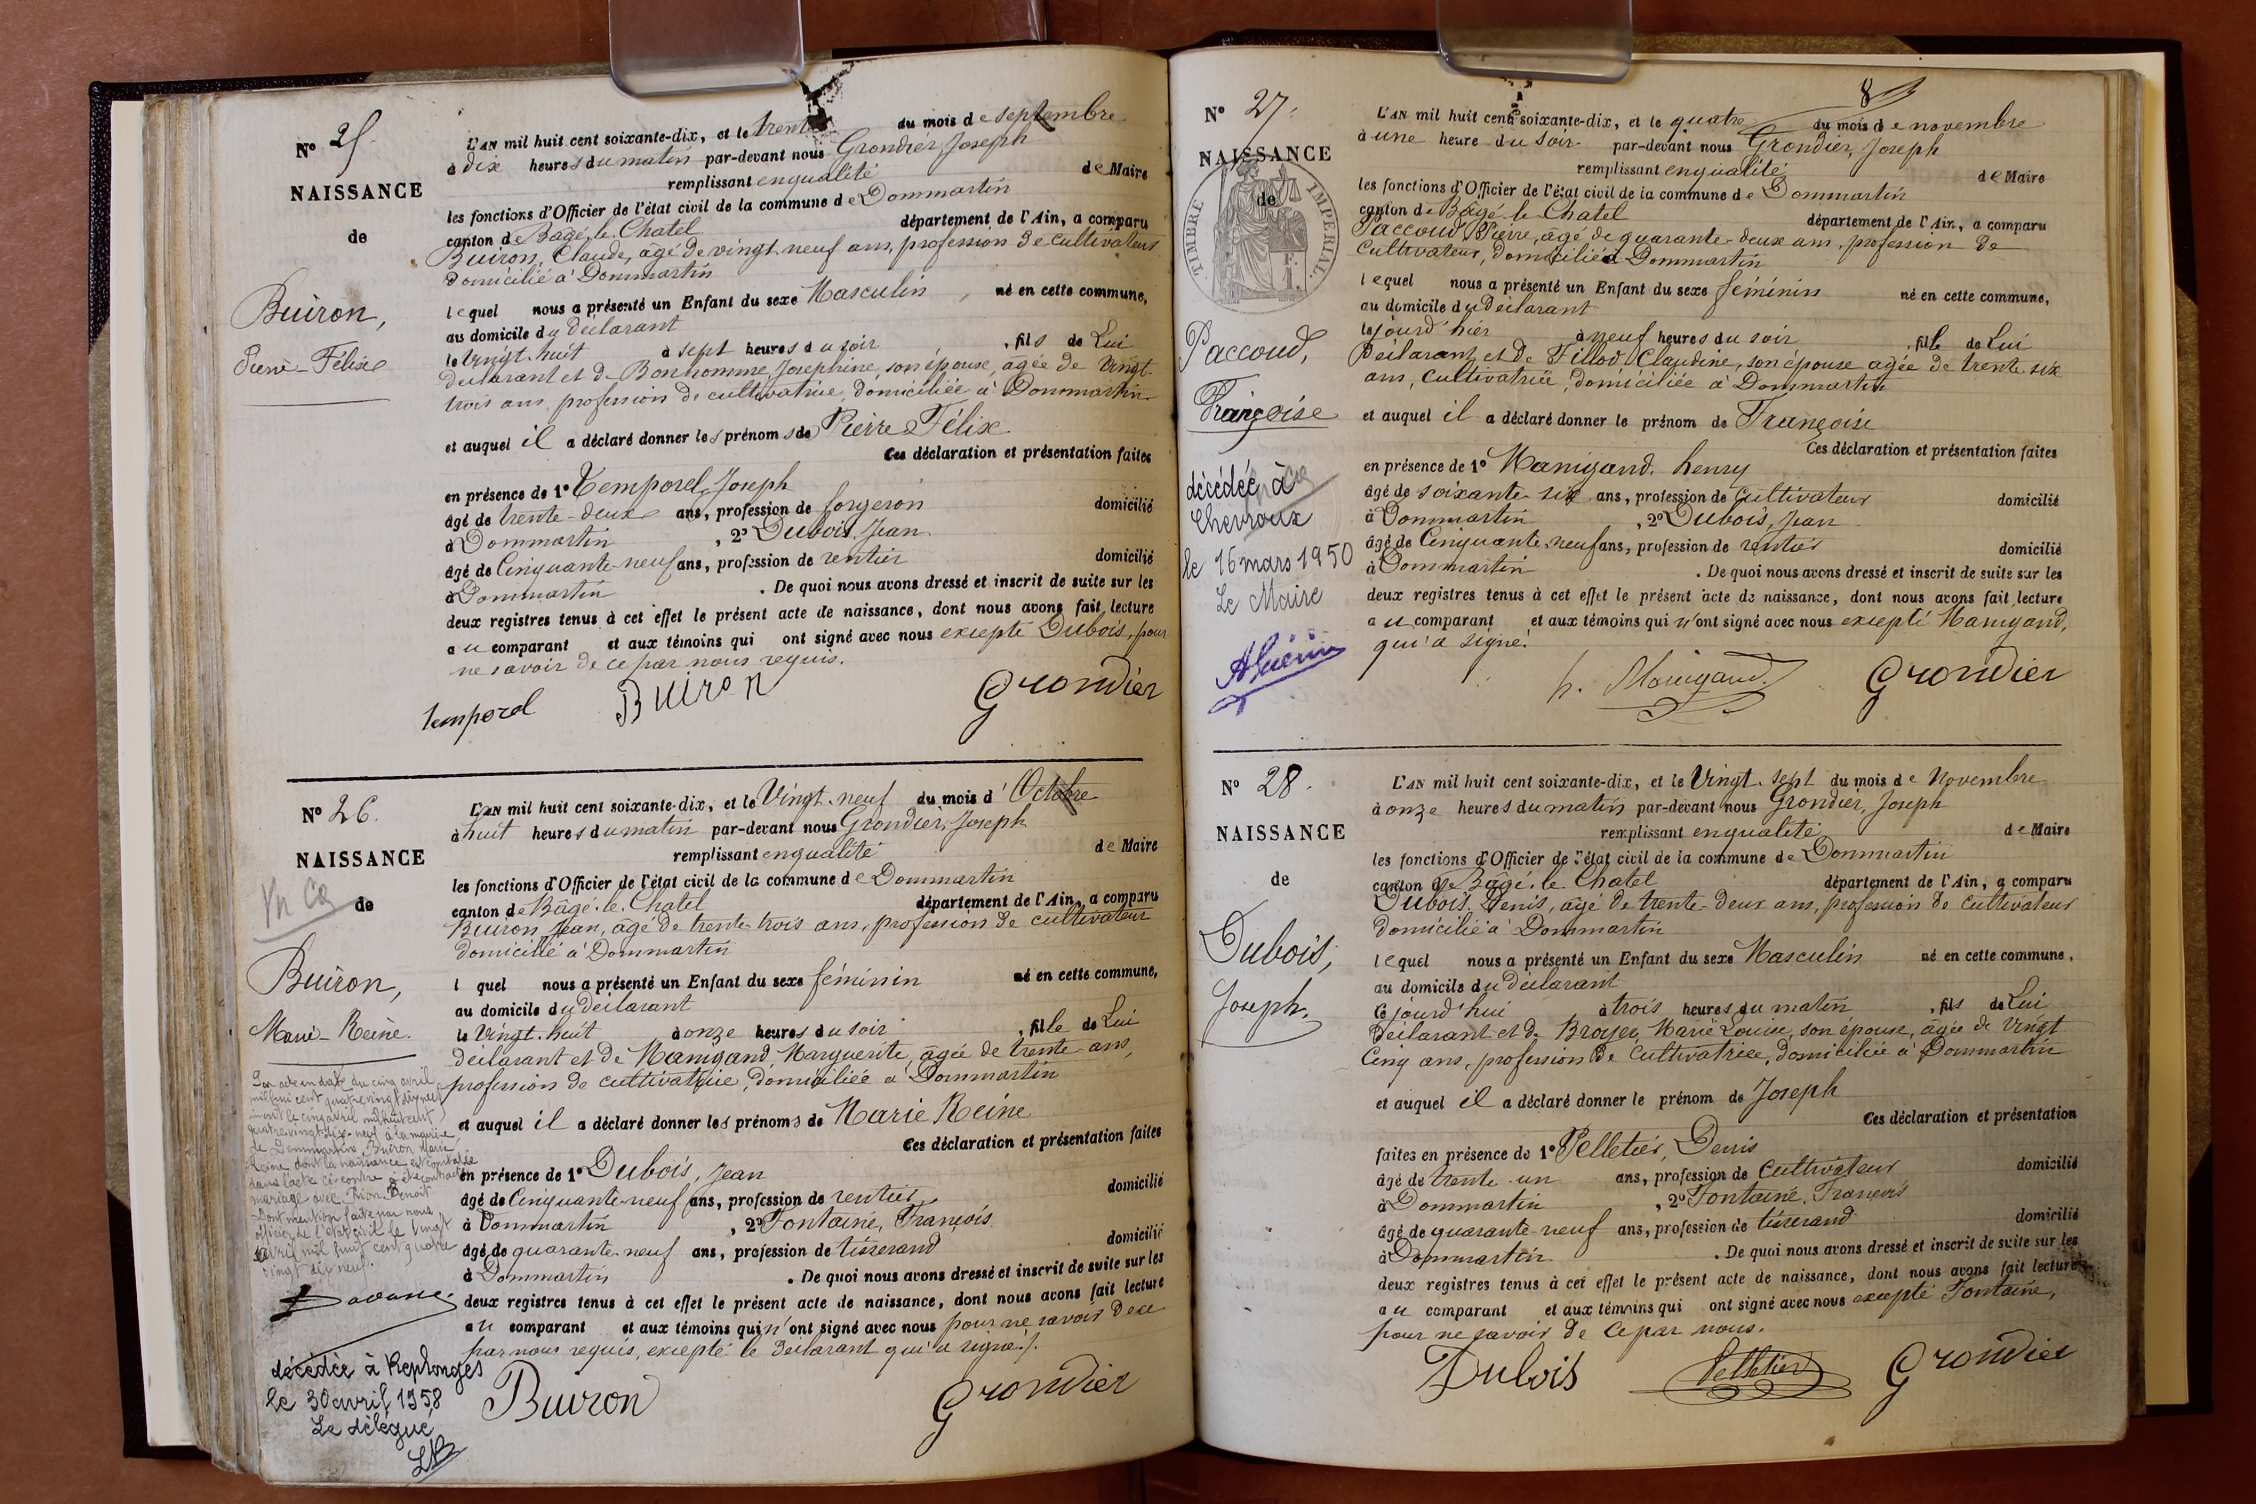 N° 25
NAISSANCE
de
Buiron,
Pierre-Félix
L'AN mil huit cent soixante-dix, et le trente du mois de septembre
à dix heures du matin par-devant nous Grondier, Joseph
remplissant en qualité de Maire
les fonctions d'Officier de l'état civil de la commune de Dommartin
canton de Bâgé-le-Chatel département de l'Ain, a comparu
Buiron, Claude, âgé de vingt-neuf ans, profession de cultivateur
domicilié à Dommartin
lequel nous a présenté un Enfant du sexe Masculin, né en cette commune,
au domicile du déclarant
le vingt-huit à sept heures du soir, fils de Lui
déclarant et de Bonhomme, Josephine, son épouse, âgée de vingt-
trois ans, profession de cultivatrice, domiciliée à Dommartin
et auquel il a déclaré donner les prénoms de Pierre Félix
Ces déclaration et présentation faites
en présence de 1° Temporel, Joseph
âgé de trente-deux ans, profession de forgeron domicilié
à Dommartin, 2° Dubois, Jean
âgé de Cinquante-neuf ans, profession de rentier domicilié
à Dommartin. De quoi nous avons dressé et inscrit de suite sur les
deux registres tenus à cet effet le présent acte de naissance, dont nous avons fait lecture
au comparant et aux témoins qui ont signé avec nous excepté Dubois, pour
ne savoir de ce par nous requis.
temporel Buiron Grondier
N° 26.
NAISSANCE
de
Buiron,
Marie-Reine.
L'AN mil huit cent soixante-dix, et le Vingt-neuf du mois d'Octobre
à huit heures du matin par-devant nous Grondier, Joseph
remplissant en qualité de Maire
les fonctions d'Officier de l'état civil de la commune de Dommartin
canton de Bâgé-le-Chatel département de l'Ain, a comparu
Buiron, Jean, âgé de trente-trois ans, profession de cultivateur
domicilié à Dommartin
l quel nous a présenté un Enfant du sexe féminin né en cette commune,
au domicile du déclarant
le vingt-huit à onze heures du soir, fille de Lui
déclarant et de Manigand Marguerite, âgée de trente ans,
profession de cultivatrice, domiciliée à Dommartin
et auquel il a déclaré donner les prénoms de Marie Reine
Ces déclaration et présentation faites
en présence de 1° Dubois, Jean
âgé de Cinquante-neuf ans, profession de rentier, domicilié
à Dommartin, 2° Fontaine, François
âgé de quarante-neuf ans, profession de tisserand domicilié
à Dommartin. De quoi nous avons dressé et inscrit de suite sur les
deux registres tenus à cet effet le présent acte de naissance, dont nous avons fait lecture
au comparant et aux témoins qui n'ont signé avec nous pour ne savoir de ce
par nous requis, excepté le déclarant qui a signé./.
Buiron Grondier
Par acte en date du cinq avril
mil huit cent quatre vingt dix neuf
inscrit le cinq avril mil huit cent
quatre vingt dix-neuf à la mairie
de Dommartin, Buiron Marie
Reine dont la naissance est constatée
dans l'acte ci-contre a été contracté
mariage avec Benoit
Dont mention faite par nous
officier de l'état civil le vingt
avril mil huit cent quatre
vingt dix neuf.
décédée à Replonges
le 30 avril 1958
Le délégué
N° 27.
NAISSANCE
de
TIMBRE IMPERIAL.
Paccoud,
Françoise
décédée à
Chevroux
le 16 mars 1950
Le Maire
AGuérin
8
L'AN mil huit cent soixante-dix, et le quatre du mois de novembre
à une heure du soir par-devant nous Grondier, Joseph
remplissant en qualité de Maire
les fonctions d'Officier de l'état civil de la commune de Dommartin
canton de Bâgé-le-Chatel département de l'Ain, a comparu
Paccoud, Pierre, âgé de quarante-deux ans, profession de
Cultivateur, domicilié à Dommartin
lequel nous a présenté un Enfant du sexe féminin né en cette commune,
au domicile du déclarant
le jourd'hier à neuf heures du soir, fille de Lui
Déclarant et de Fillod, Claudine, son épouse âgée de trente-six
ans, cultivatrice, domiciliée à Dommartin
et auquel il a déclaré donner le prénom de Françoise
Ces déclaration et présentation faites
en présence de 1° Manigand, henry
âgé de soixante-six ans, profession de Cultivateur domicilié
à Dommartin, 2° Dubois, Jean
âgé de Cinquante-neuf ans, profession de rentier domicilié
à Dommartin. De quoi nous avons dressé et inscrit de suite sur les
deux registres tenus à cet effet le présent acte de naissance, dont nous avons fait lecture
au comparant et aux témoins qui n'ont signé avec nous excepté Manigand,
qui a signé.
h. Manigand. Grondier
N° 28.
NAISSANCE
de
Dubois,
Joseph.
L'AN mil huit cent soixante-dix, et le Vingt-sept du mois de Novembre
à onze heures du matin par-devant nous Grondier, Joseph
remplissant en qualité de Maire
les fonctions d'Officier de l'état civil de la commune de Dommartin
canton de Bâgé-le-Chatel département de l'Ain, a comparu
Dubois, Denis, âgé de trente-deux ans, profession de cultivateur
domicilié à Dommartin
lequel nous a présenté un Enfant du sexe Masculin né en cette commune,
au domicile du déclarant
ce jourd'hui à trois heures du matin, fils de Lui
Déclarant et de Broyer, Marie Louise, son épouse, âgée de vingt-
Cinq ans, profession de Cultivatrice, domiciliée à Dommartin
et auquel il a déclaré donner le prénom de Joseph
Ces déclaration et présentation
faites en présence de 1° Pelletier, Denis
âgé de trente-un ans, profession de Cultivateur domicilié
à Dommartin, 2° Fontaine, François
âgé de quarante-neuf ans, profession de tisserand domicilié
à Dommartin. De quoi nous avons dressé et inscrit de suite sur les
deux registres tenus à cet effet le présent acte de naissance, dont nous avons fait lecture
au comparant et aux témoins qui ont signé avec nous excepté Fontaine,
pour ne savoir de ce par nous.
Dubois Pelletier Grondier